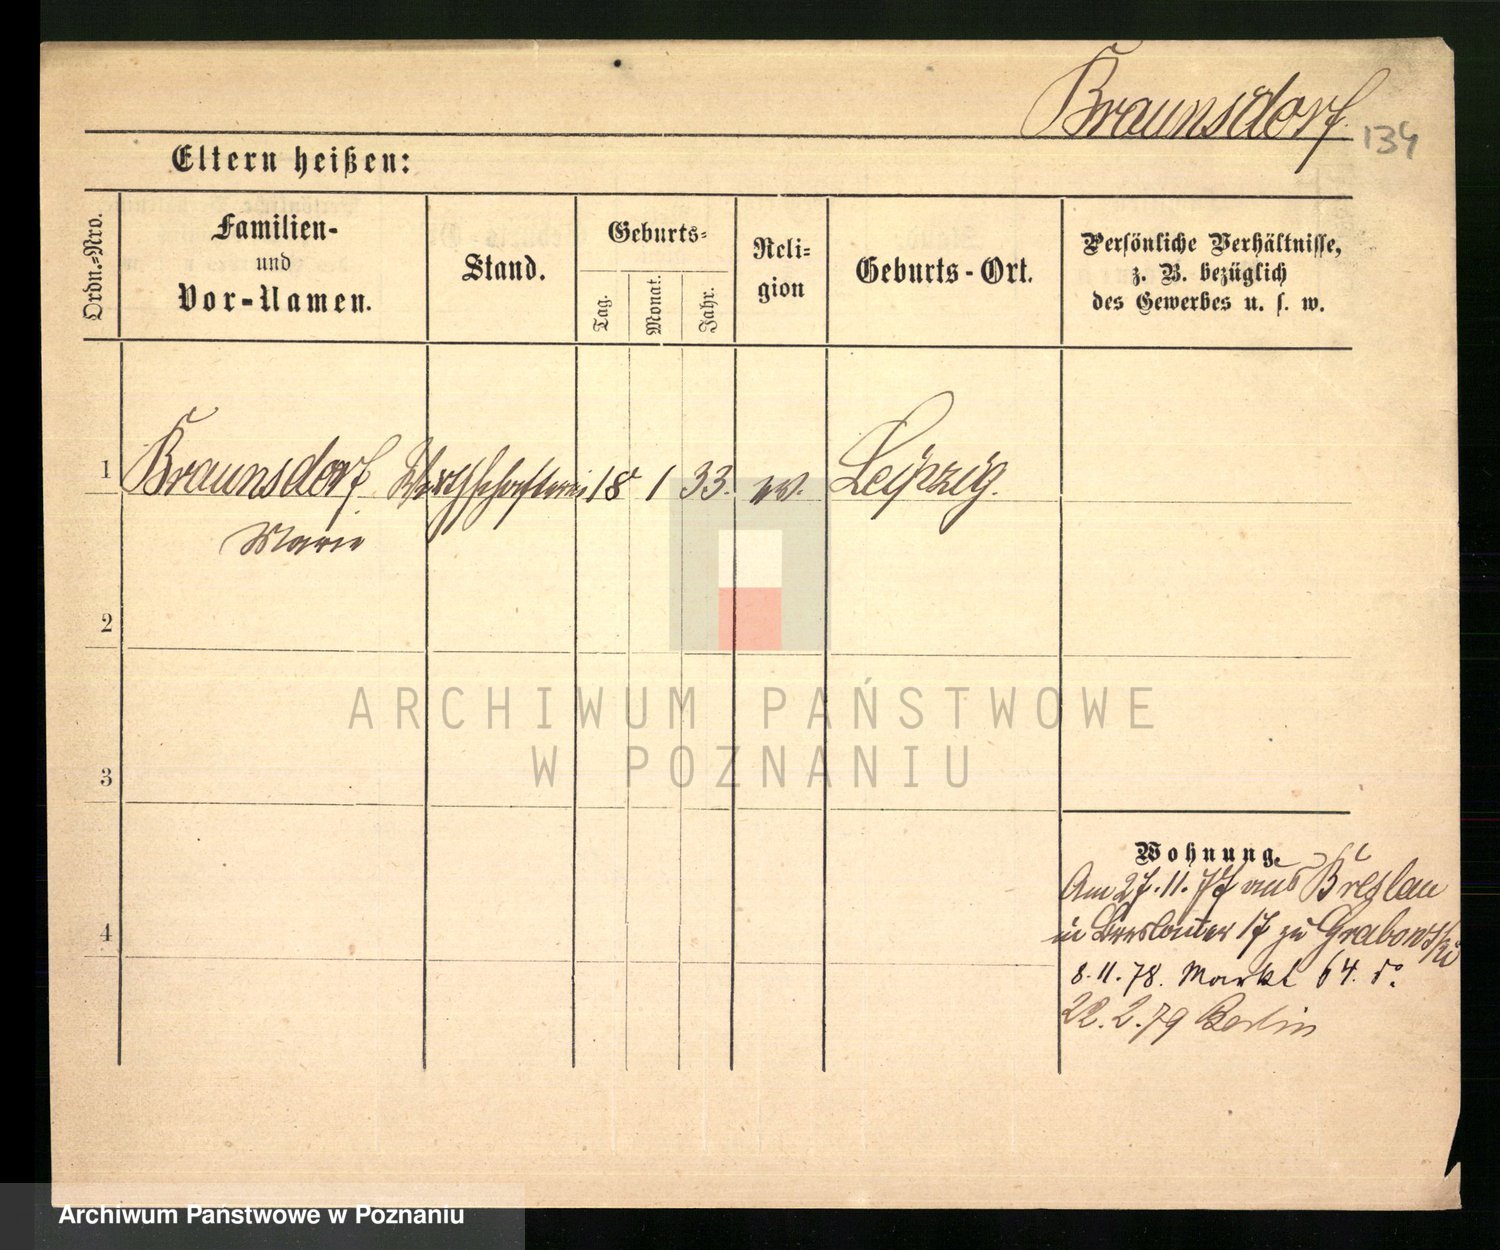 Braunsdorf
134
Eltern heißen:
Ordn.-Nro.
Familien-
und
Vor-Namen.
Stand.
Geburts-
Tag.
Monat.
Jahr.
Reli-
gion
Geburts-Ort.
Persönliche Verhältnisse,
z. B. bezüglich
des Gewerbes u. s. w.
1 Braunsdorf Wirthschafterin 18 1 33. ev. Leipzig.
Marie
2
3
4
ARCHIWUM PAŃSTWOWE
W POZNANIU
Wohnung.
Am 27.11.77 aus Breslau
in Breslauer 17 zu Grabowski
8.11.78. Markt 64.
22.2.79 Berlin
Archiwum Państwowe w Poznaniu